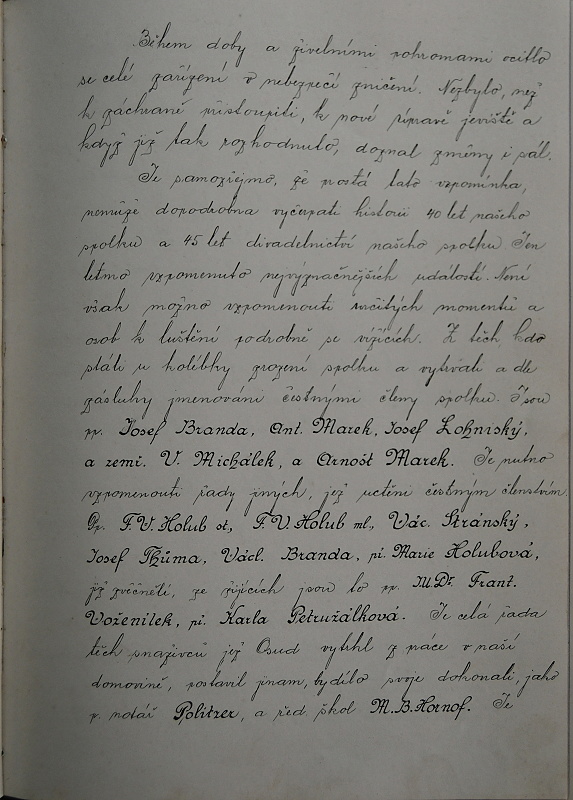 Během doby a živelními pohromami ocitlo
se celé zařízení v nebezpečí zničení. Nezbylo, než
k záchraně přistoupiti, k nové úpravě jeviště a
když již tak rozhodnuto, doznal změny i sál.
Je samozřejmo, že prostá tato vzpomínka,
nemůže dopodrobna vyčerpati historii 40 let našeho
spolku a 45 let divadelnictví našeho spolku Jen
letmo vzpomenuto nejvýznačnějších událostí. Není
však možno vzpomenouti určitých momentů a
osob k luštění podrobně se vížících. Z těch, kdo
stáli u kolébky zrození spolku a vytrvali a dle
zásluhy jmenováni čestnými členy spolku. Jsou
pp. Josef Branda, Ant. Marek, Josef Lohniský,
a zemř. V. Michálek, a Arnošt Marek. Je nutno
vzpomenouti řady jiných, jež uctěni čestným členstvím.
Pp. F. V. Holub st, F. V. Holub ml., Vác. Stránský,
Josef Thůma, Václ. Branda, pí. Marie Holubová,
již zvěčnělí, ze žijících jsou to pp. M.Dr. Frant.
Voženílek, pí. Karla Petružálková. Je celá řada
těch snaživců jež Osud vytrhl z práce v naší
domovině, postavil jinam, by dílo svoje dokonali, jako
p. notář Politzer, a řed. škol M. B. Hornof. Je